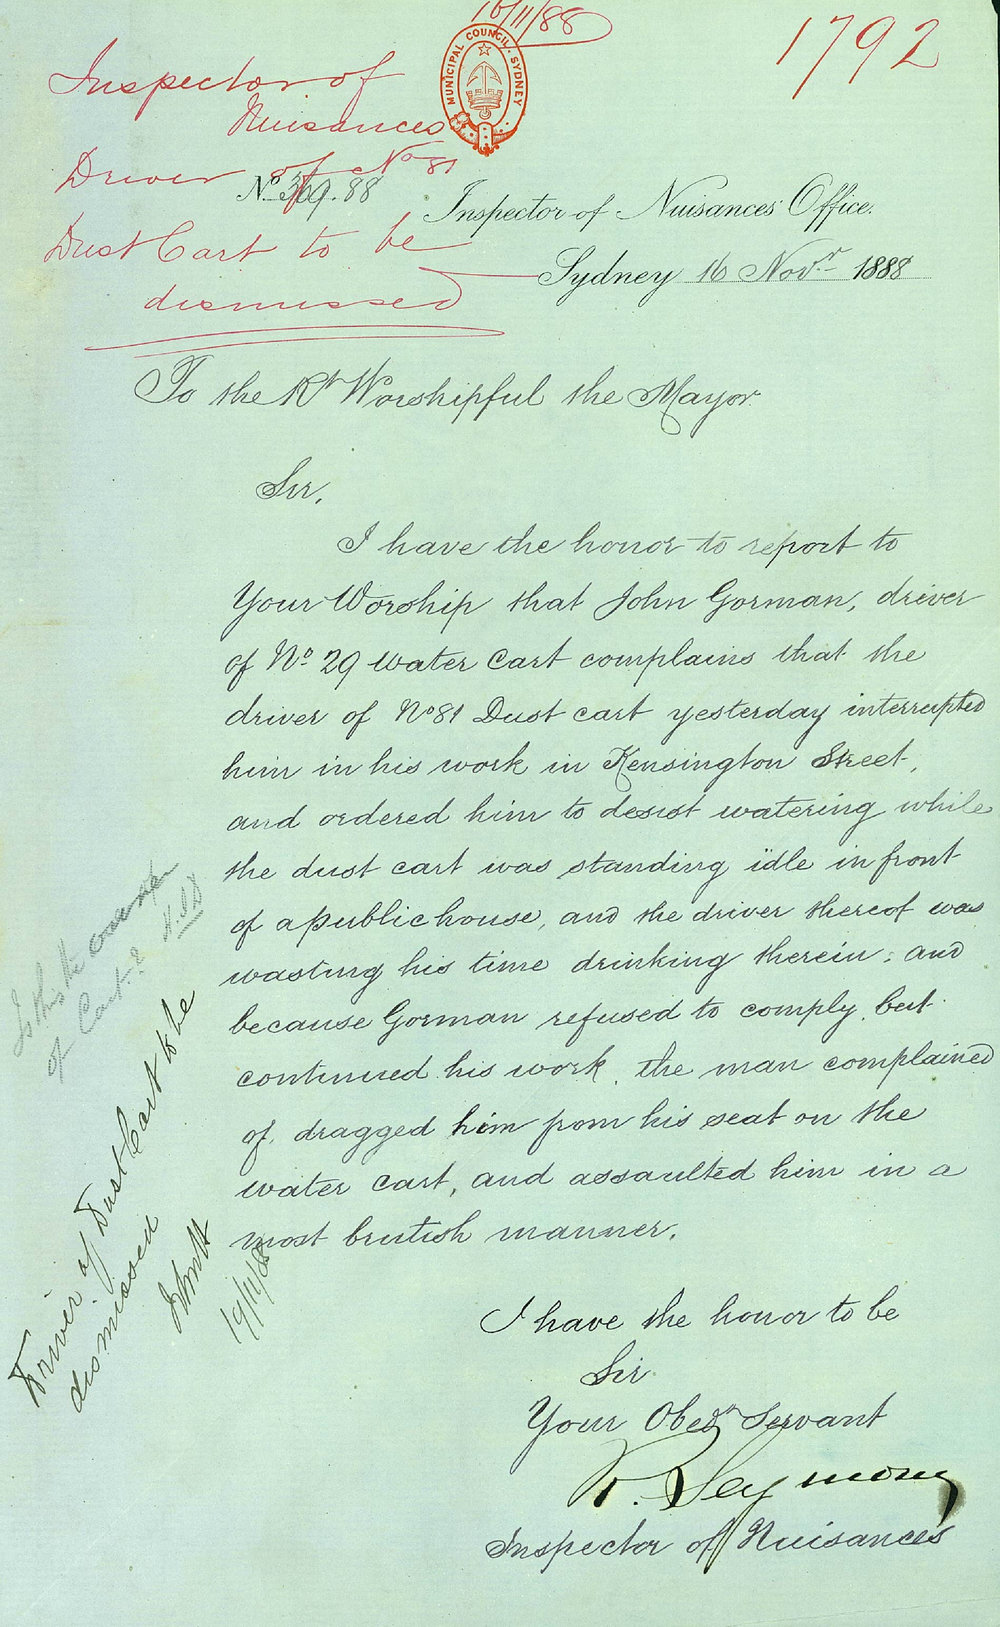 16/11/88
1792
MUNICIPAL COUNCIL. SYDNEY
Inspector of
Nuisances
Driver of No 81
Dust Cart to be
dismissed
No 369.88
Inspector of Nuisances' Office.
Sydney 16 Novr. 1888
To the Rt Worshipful the Mayor
Sir,
I have the honor to report to
Your Worship that John Gorman, driver
of No. 29 water Cart complains that the
driver of No 81 Dust cart yesterday interrupted
him in his work in Kensington Street,
and ordered him to desist watering while
the dust cart was standing idle in front
of a public house, and the driver thereof was
wasting his time drinking therein; and
because Gorman refused to comply, but
continued his work, the man complained
of, dragged him from his seat on the
water cart, and assaulted him in a
most brutish manner.
I have the honor to be
Sir
Your Obedn Servant
R. Seymour
Inspector of Nuisances
Is this the
of Cart?
Driver of Dust Cart to be
dismissed
19/11/88